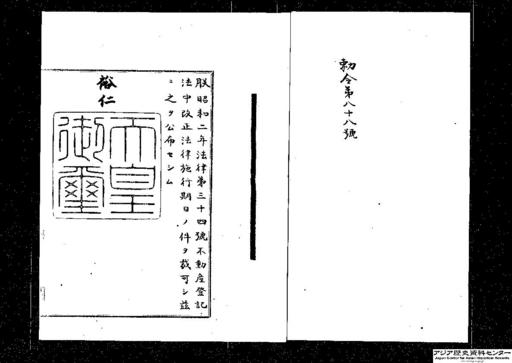 勅令第八十八號
朕昭和二年法律第三十四號不動産登記
法中改正法律施行期日ノ件ヲ裁可シ茲
ニ之ヲ公布セシム
裕仁
天皇
御璽
アジア歴史資料センター
Japan Center for Asian Historical Records